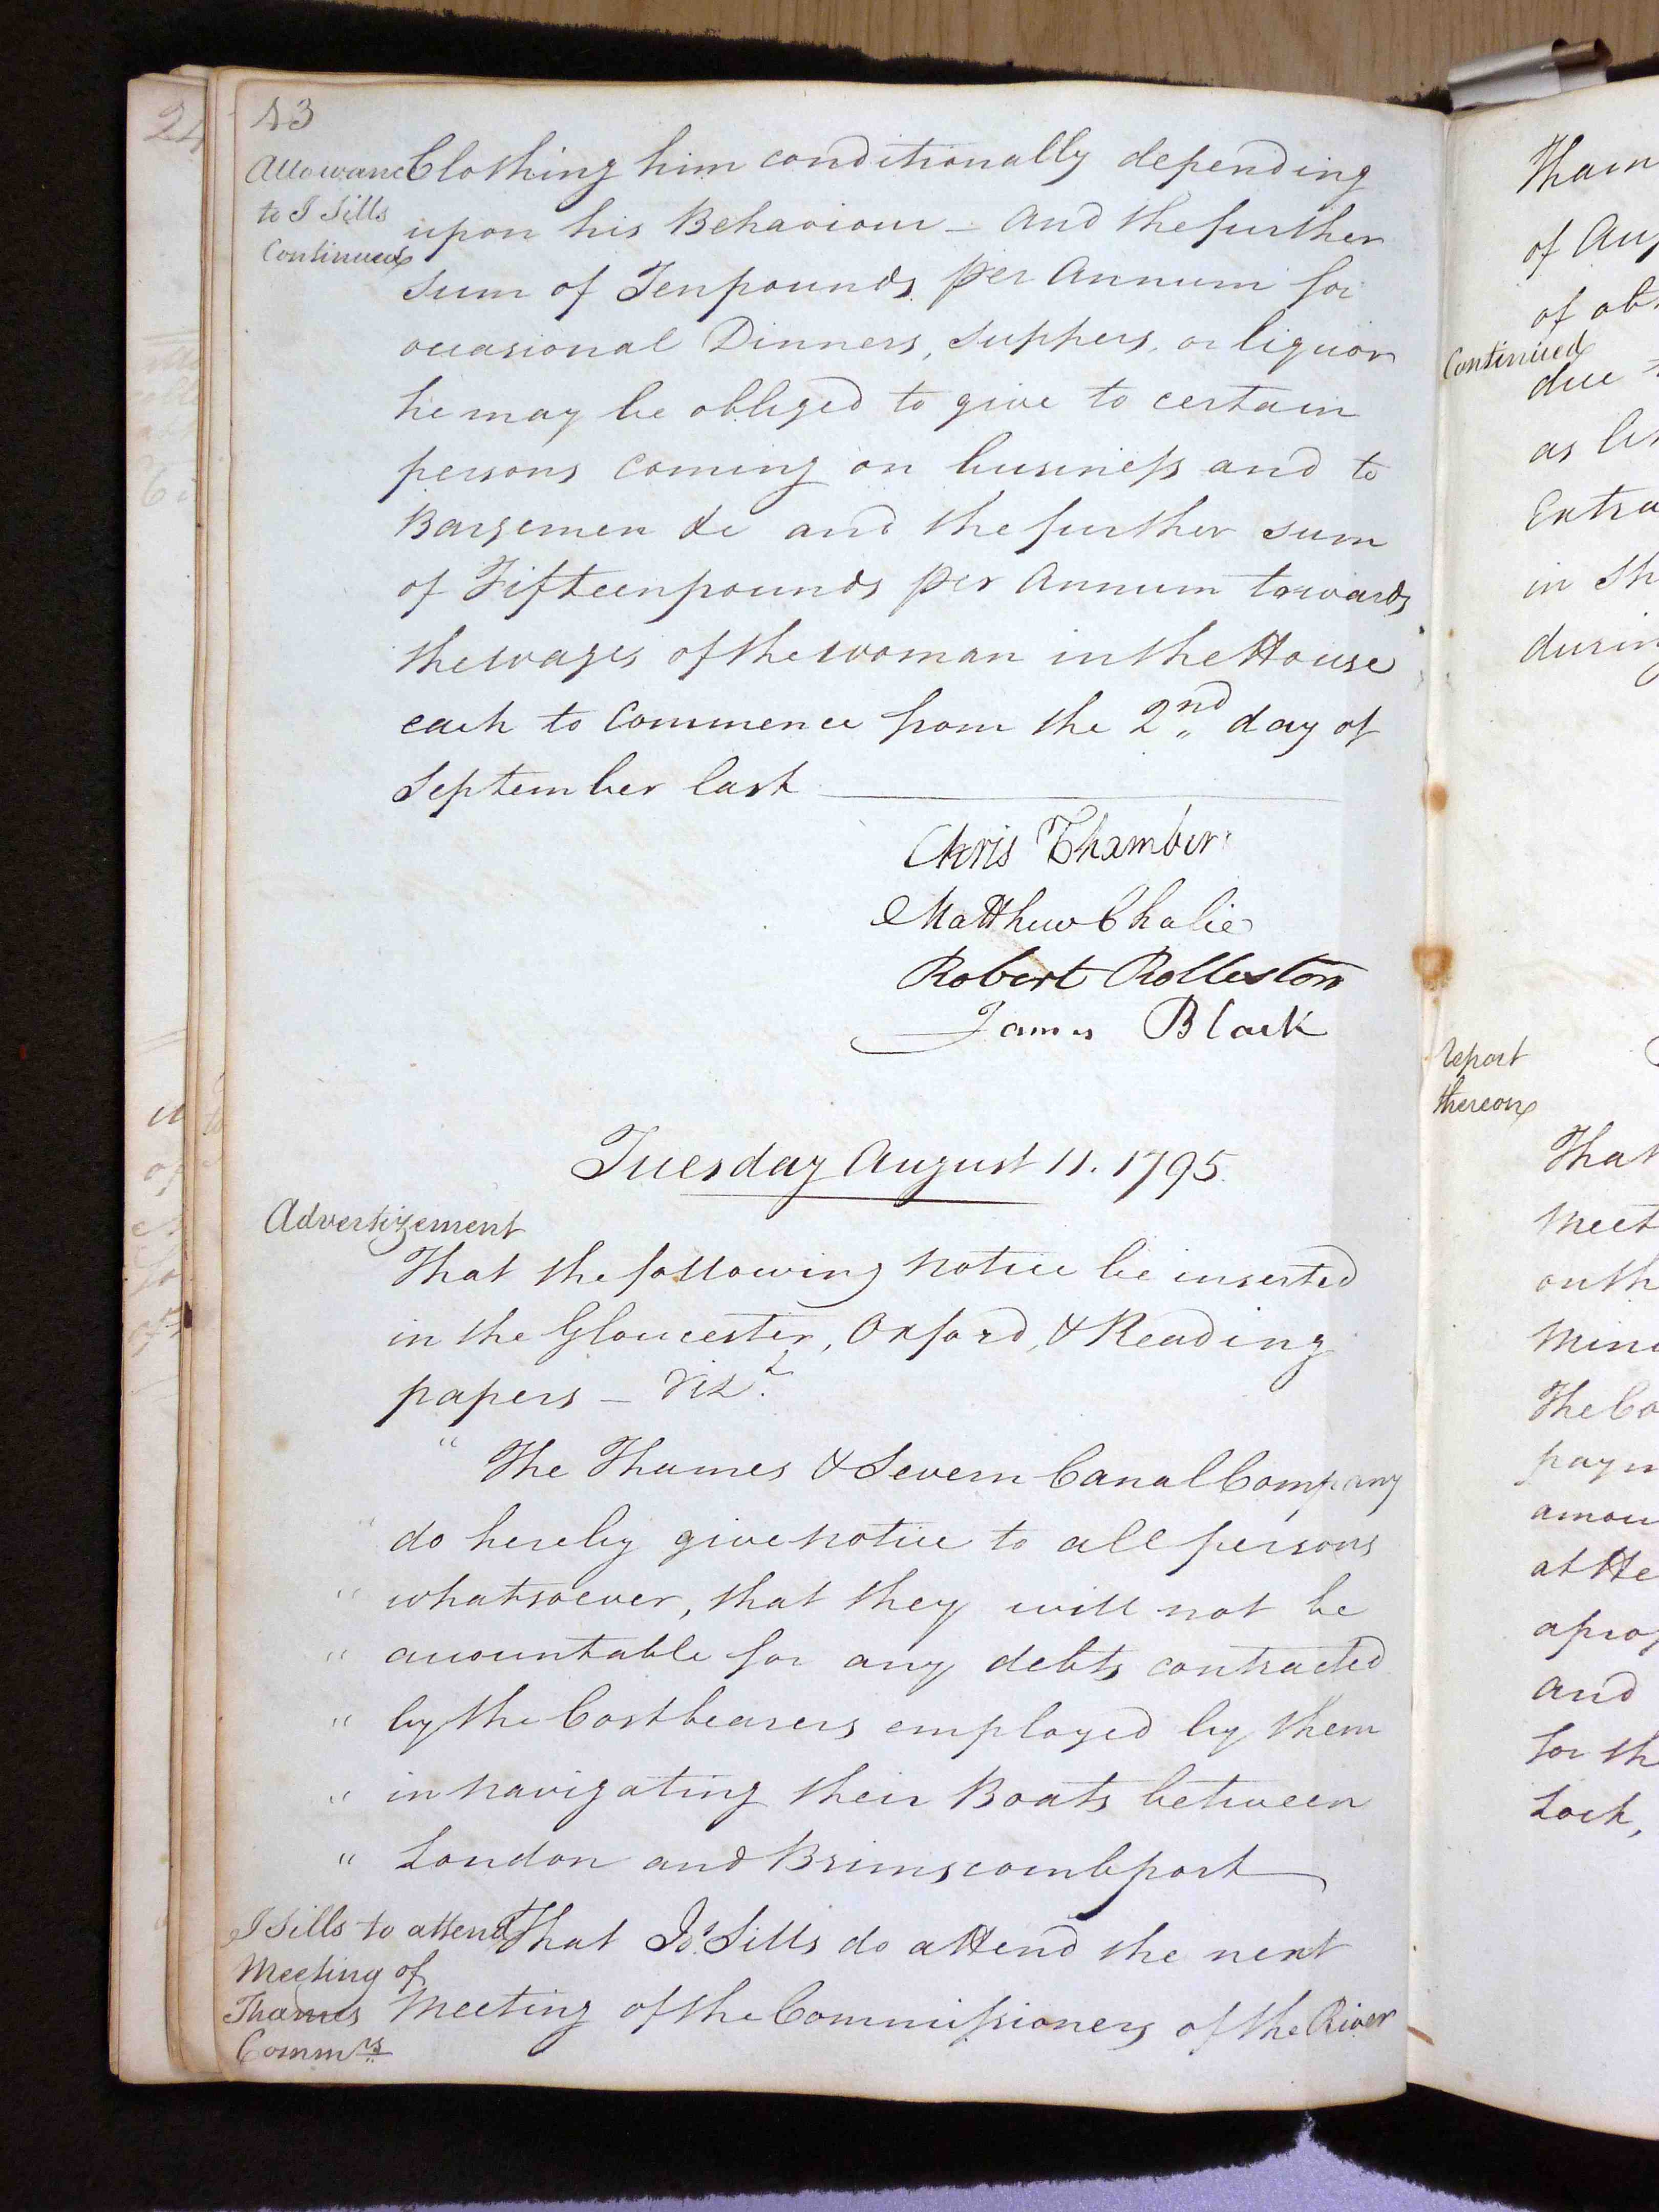 43
Allowance
to J Sills
Continued
Clothing him conditionally depending
upon his Behaviour – and the further
sum of Ten pounds per Annum for
occasional Dinners, Suppers, or liquor
he may be obliged to give to certain
persons coming on business and to
Bargemen &c and the further sum
of Fifteen pounds per Annum towards
the wages of the woman in the House
each to Commence from the 2nd day of
September last
Chris Chambers
Matthew Chalie
Robert Rolleston
James Black
Tuesday August 11. 1795.
Advertizement
That the following notice be inserted
in the Gloucester, Oxford, & Reading
papers – Vizt
" The Thames & Severn Canal Company
" do hereby give notice to all persons
" whatsoever, that they will not be
" accountable for any debts contracted
" by the Costbearers employed by them
" in navigating their Boats between
" London and Brimscombport
J Sills to attend
Meeting of
Thames
Commrs
That Jos. Sills do attend the next
Meeting of the Commissioners of the River
Tham
of Aug
of obt
Continued
due
as
Extra
in Th
during
report
thereon
That
Meet
on th
Min
The Co
paym
amou
at He
a prop
and
for th
Lock,